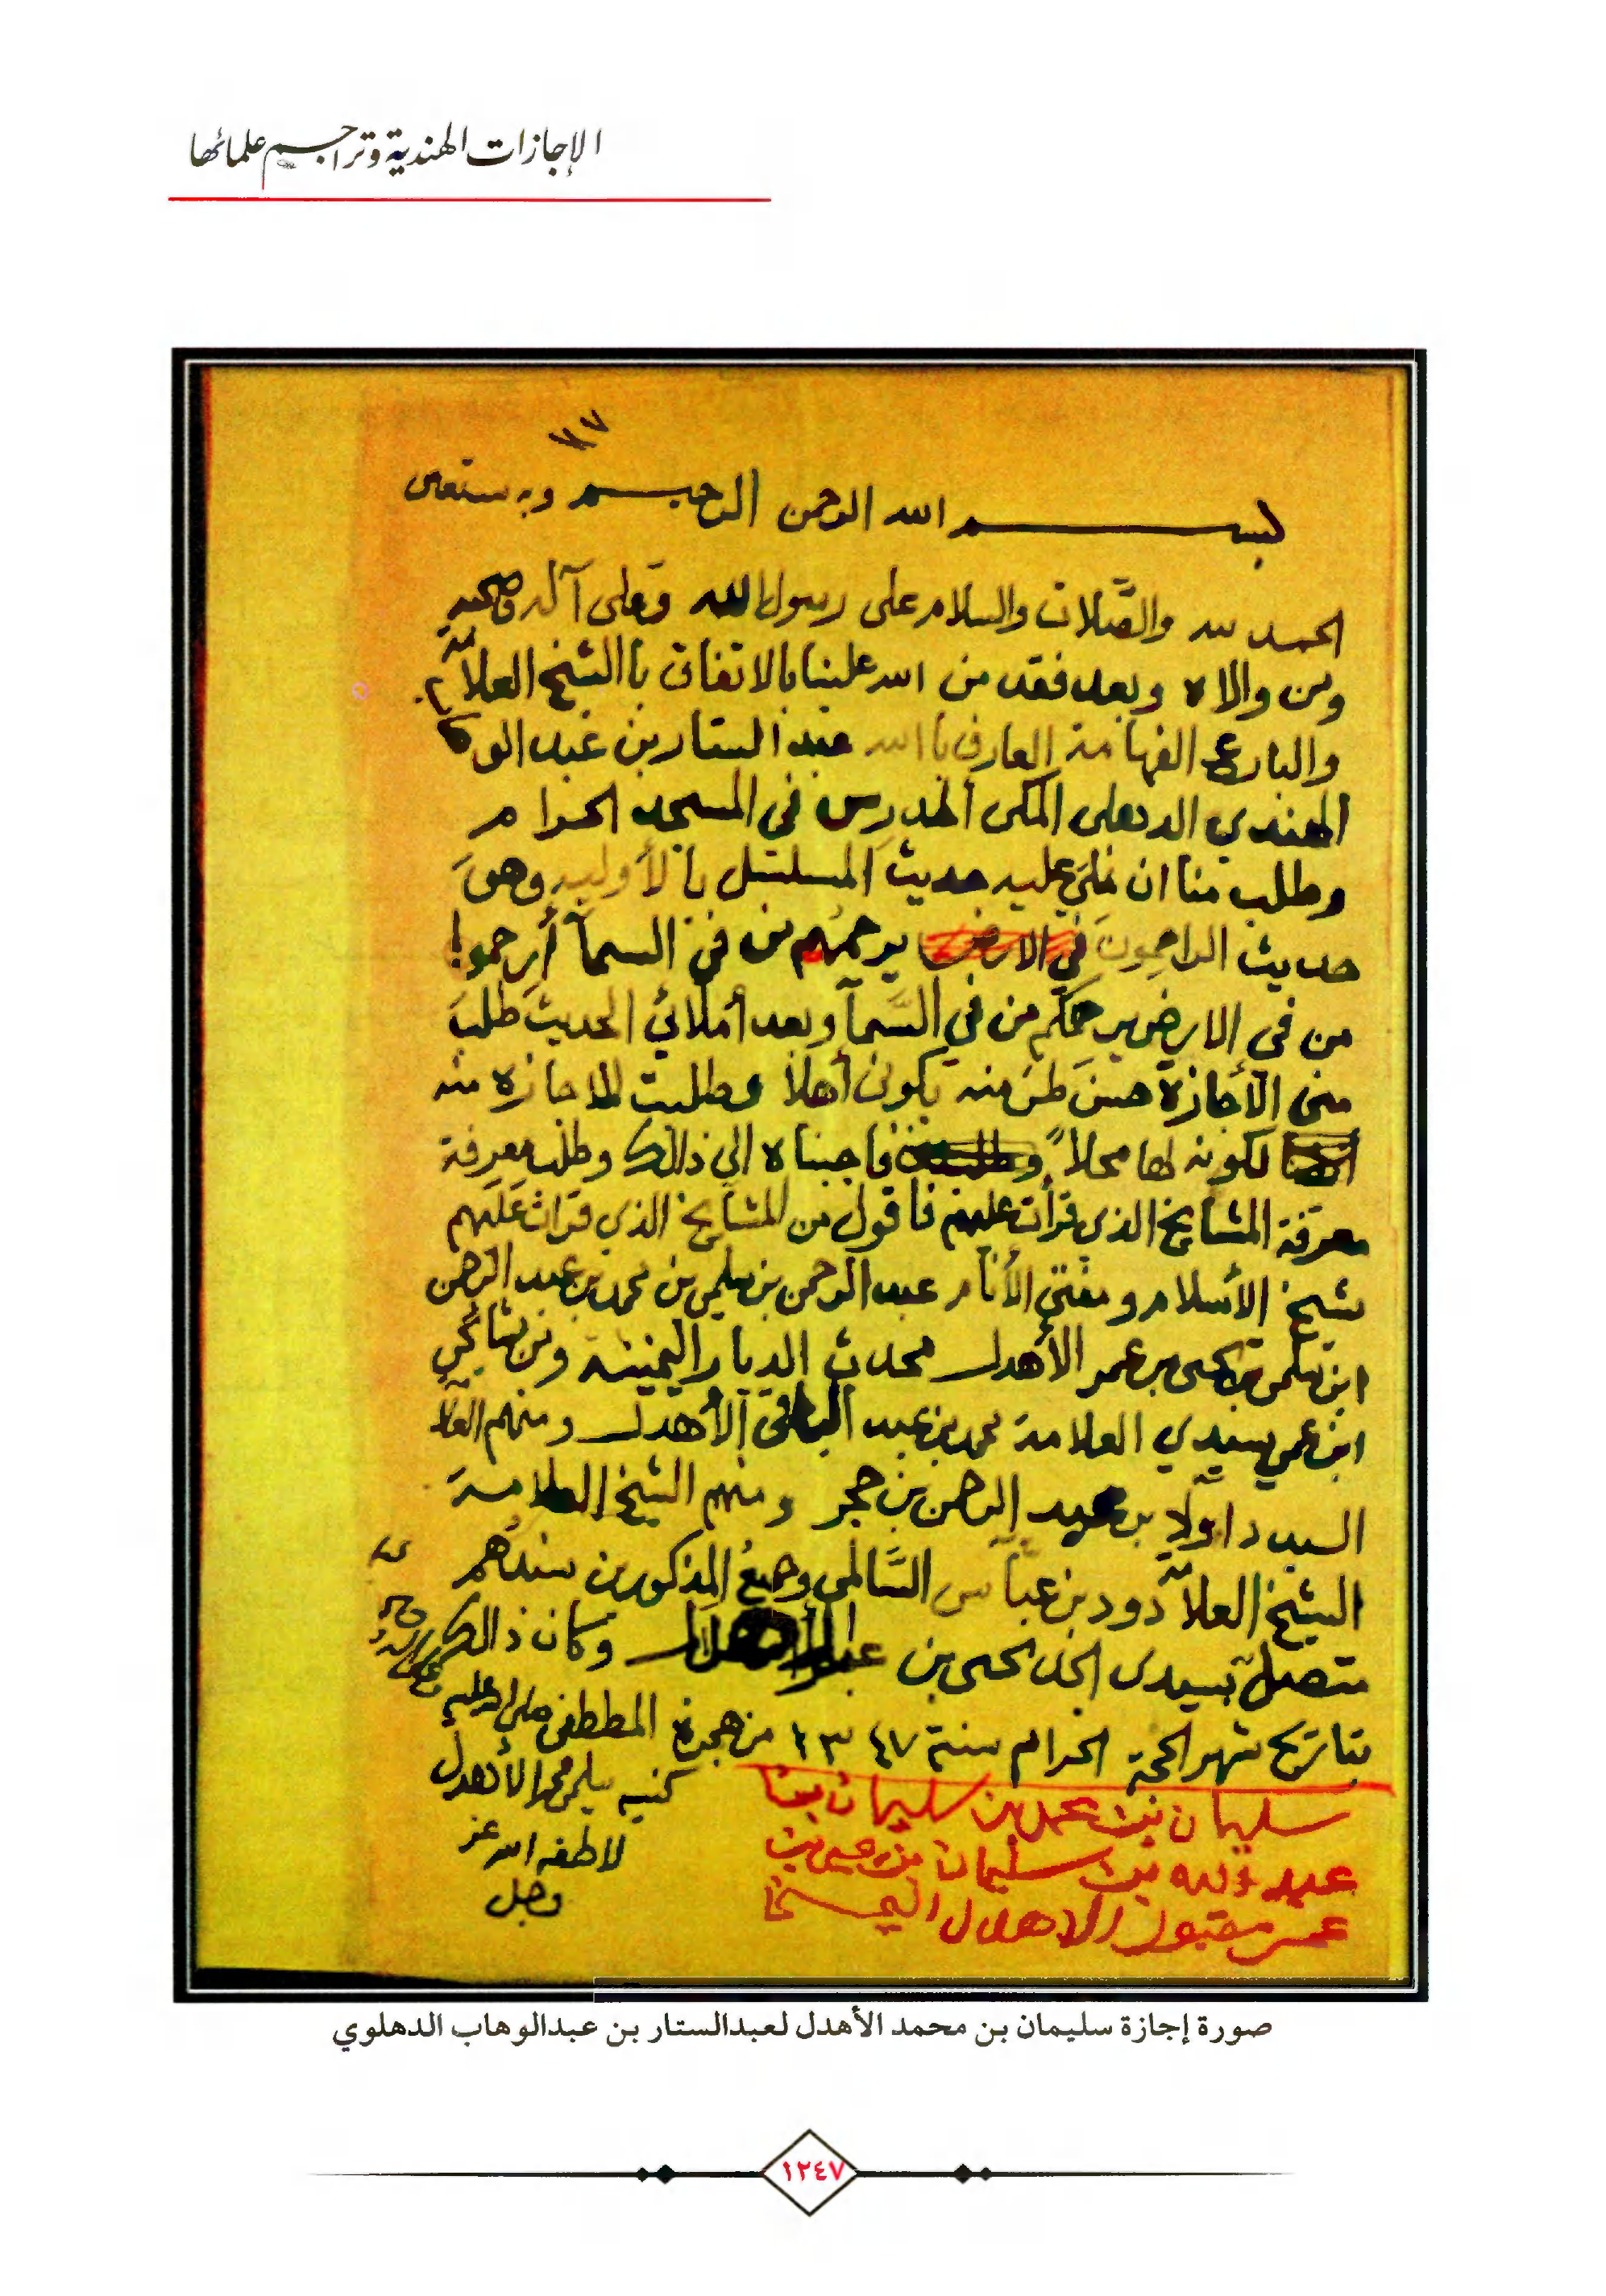 الإجازات الهندية وتراجم علمائها
٧٧
بسم الله الرحمن الرحيم وبه نستعين
الحمد لله والصَّلات والسلام على رسول الله وعلى آله وصحبه
ومن والاه وبعد فقد من الله علينا بالاتفاق با الشيخ العلامة
والبارع الفهامة العارف با الله عبد الستار بن عبد الو
الهندي الدهلى المكى المدرس في المسجد الحرام
وطلب منا ان نملي عليه حديث المسلسل بالأوليه وهو
حديث الراحمون في الارض يرحمهم من في السمآ أرحموا
من في الارض يرحمكم من في السَّمآ وبعد أملائي الحديث طلب
منى الآجازة حسن ظن منه بكونى أهلاً وطلبت الاجازه منه
لكونه لها محلاً فاجبناه الى ذالك وطلب معرفة
معرفة المشايخ الذي قرأت عليهم فأقول من المشايخ الذي قرات عليهم
شيخ الأسلام ومفتي الأنام عبد الرحمن بن سليمن بن محمد بن عبد الرحمن
ابن سليمن بن يحيى بن عمر الأهدل محدث الديار اليمنيه ومن مشائخي
ابن عمي سيدي العلامة محمد بن عبد الباقى الأهدل ومنهم العلا
السيد داوولا بن عبد الرحمن بن حجر ومنهم الشيخ العلامة
الشيخ العلامة دود بن عباس السَّالمى وجميع المذكورين سندهم
متصل بسيدى الجد يحيى بن وكان ذالك
بتاريخ شهر الحجة الحرام سنة ١٣٤٧ من هجرة المصطفى صلى الله عليه
كتبه سليمن محمد الأهدل
لاطفه الله عز
وجل
سليمان بن محمد بن سليمان بن
عبد الله بن سليمان بن يحيى بن
عمر مقبول الاهدل
صورة إجازة سليمان بن محمد الأهدل لعبدالستار بن عبدالوهاب الدهلوي
١٢٤٧